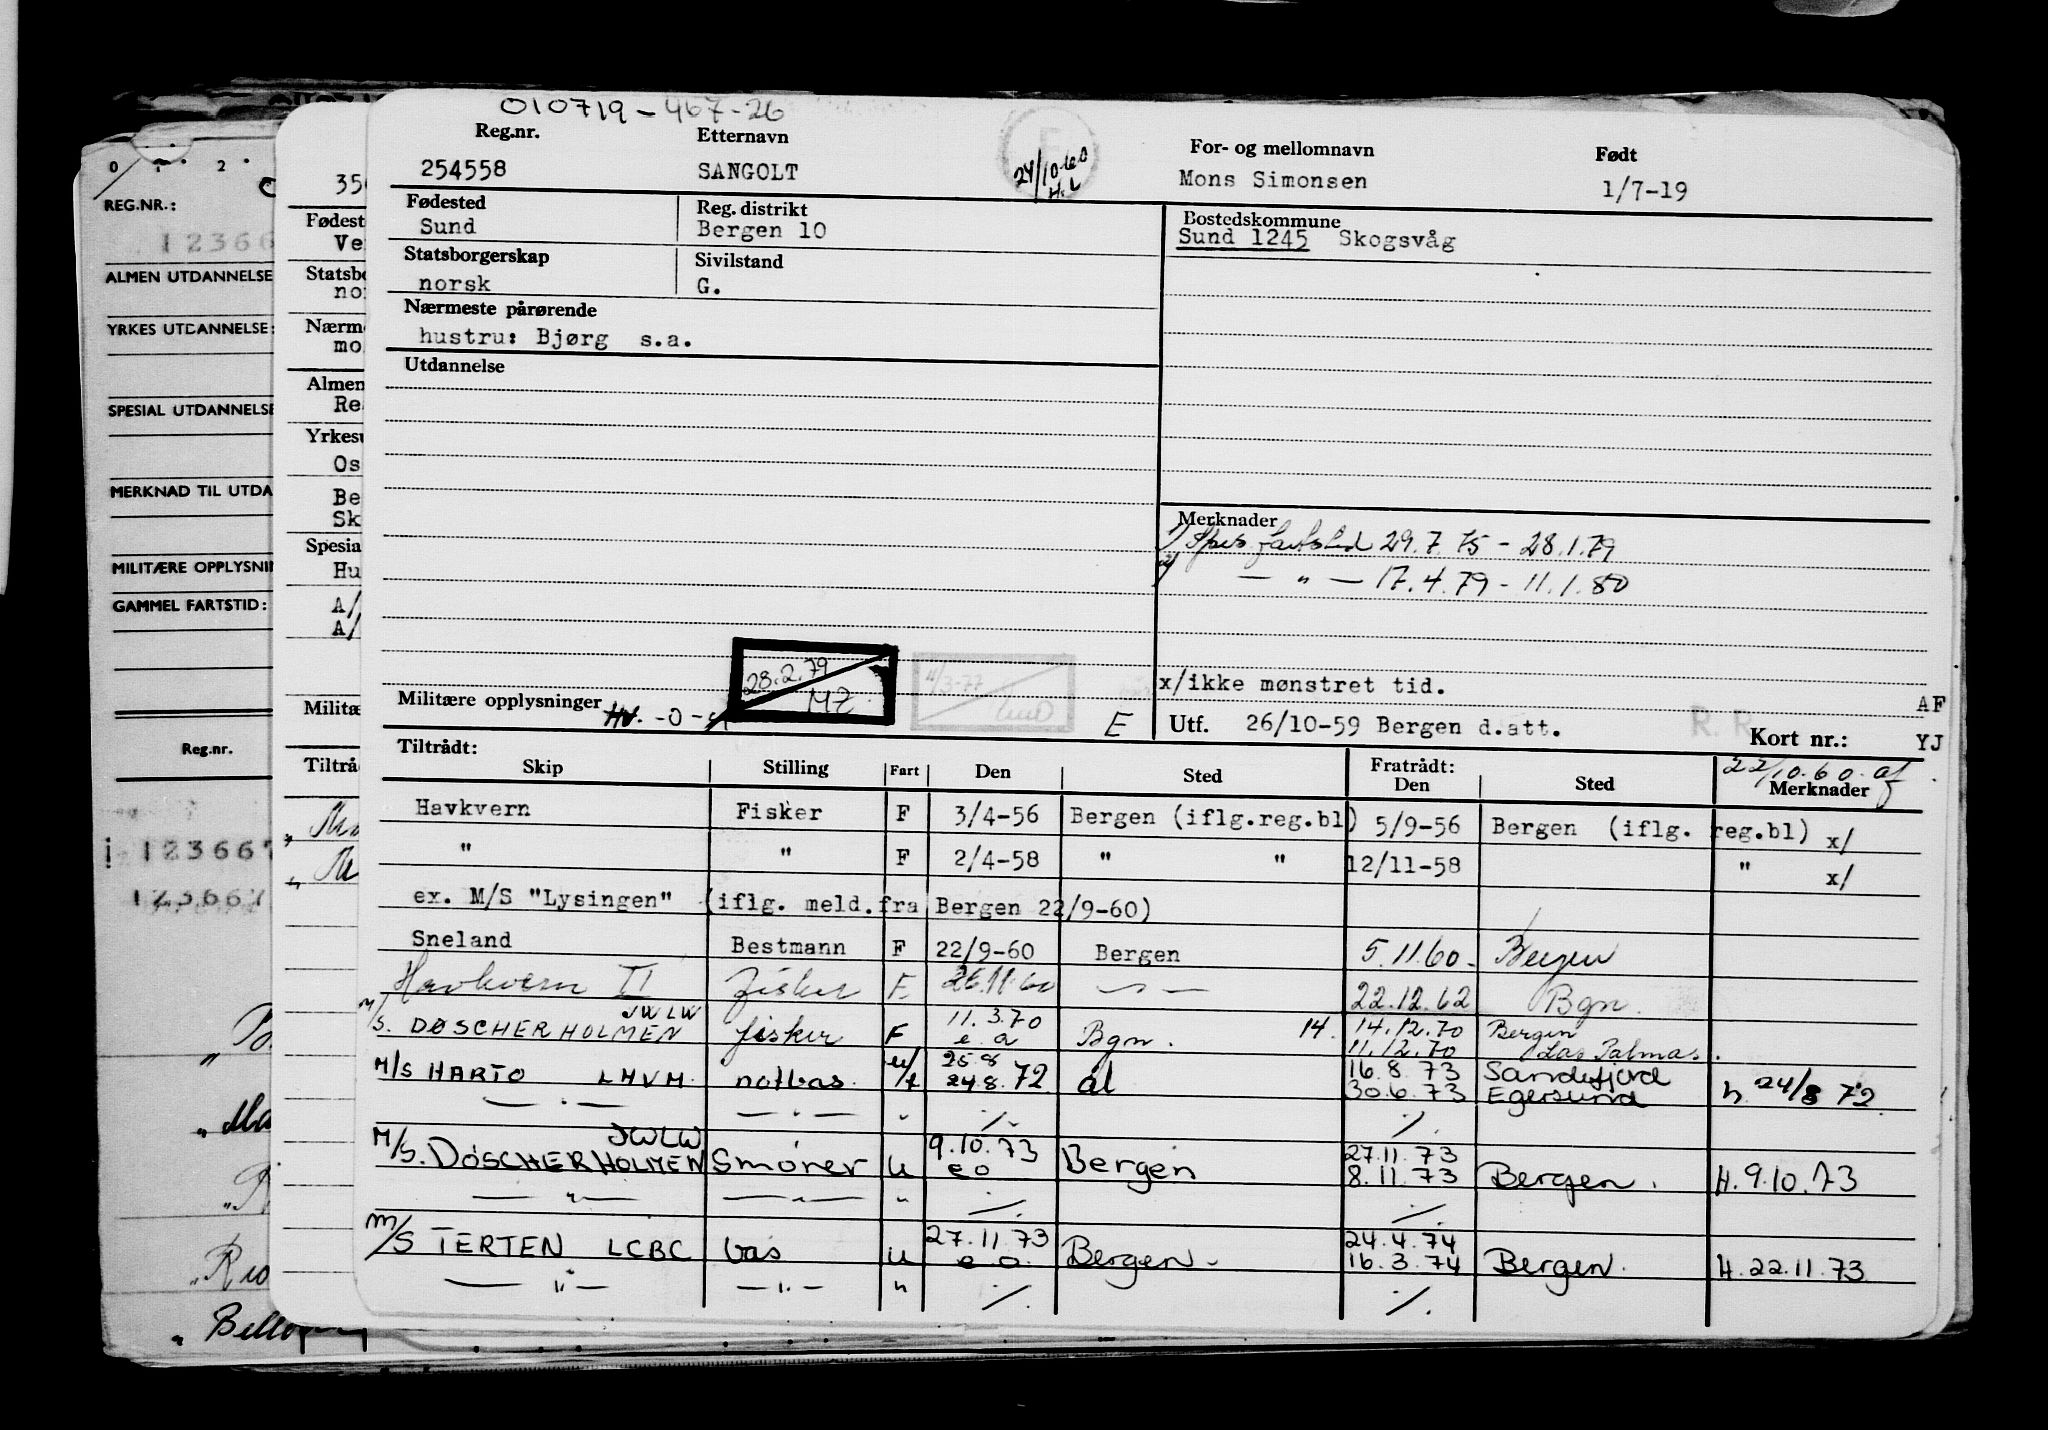 010719-467-26
Reg.nr. Etternavn For- og mellomnavn Født
254558 SANGOLT 24/10-60 H.L Mons Simonsen 1/7-19
Fødested Reg. distrikt Bostedskommune
Sund Bergen 10 Sund 1245 Skogsvåg
Statsborgerskap Sivilstand
norsk G.
Nærmeste pårørende
hustru: Bjørg s.a.
Utdannelse
Merknader
1) Spes. fartstid 29.7.75 - 28.1.79
2) — " — 17.4.79 - 11.1.80
28.2.79
MZ
4/3-77
x/ikke mønstret tid.
Militære opplysninger HV. -0-
E
Utf. 26/10-59 Bergen d.att. R. R Kort nr.:
AF
YJ
22/10.60. af
Tiltrådt: Fratrådt:
Skip Stilling Fart Den Sted Den Sted Merknader
Havkvern Fisker F 3/4-56 Bergen (iflg.reg.bl) 5/9-56 Bergen (iflg. reg.bl) x/
" " F 2/4-58 " " 12/11-58 " x/
ex. M/S "Lysingen" (iflg. meld.fra Bergen 22/9-60)
Sneland Bestmann F 22/9-60 Bergen 5.11.60. Bergen
Havkvern II Fisker F. 26.11.60 — " — 22.12.62 Bgn.
M/S. DØSCHERHOLMEN JWLW fisker F 11.3.70 e.a Bgn. 14. 14.12.70 Bergen
11.12.70 Las Palmas.
M/S HARTO LMVM. notbas. u/f 25.8 24.8.72 ål 16.8.73 Sandefjord
30.6.73 Egersund h. 24/8 72.
— " — — " — " ./. ./.
M/S. DØSCHERHOLMEN JWLW Smører u 9.10.73 e o Bergen 27.11.73
8.11.73 Bergen. H. 9.10.73
— " — — " — " ./. ./.
M/S TERTEN LCBC bas u 27.11.73 e.o. Bergen. 24.4.74
16.3.74 Bergen. H. 22.11.73
— " — — " — " ./. ./.
0 1 2
REG.NR.:
12366
ALMEN UTDANNELSE
YRKES UTDANNELSE:
SPESIAL UTDANNELSE
MERKNAD TIL UTDA
MILITÆRE OPPLYSNIN
GAMMEL FARTSTID:
Reg.nr.
123667
123667
350
Fødest
Ve
Statsbo
no
Nærm
mo
Almen
Re
Yrkesu
Os
Be
Sk
Spesia
Hu
A/
A/
Militæ
Tiltrå